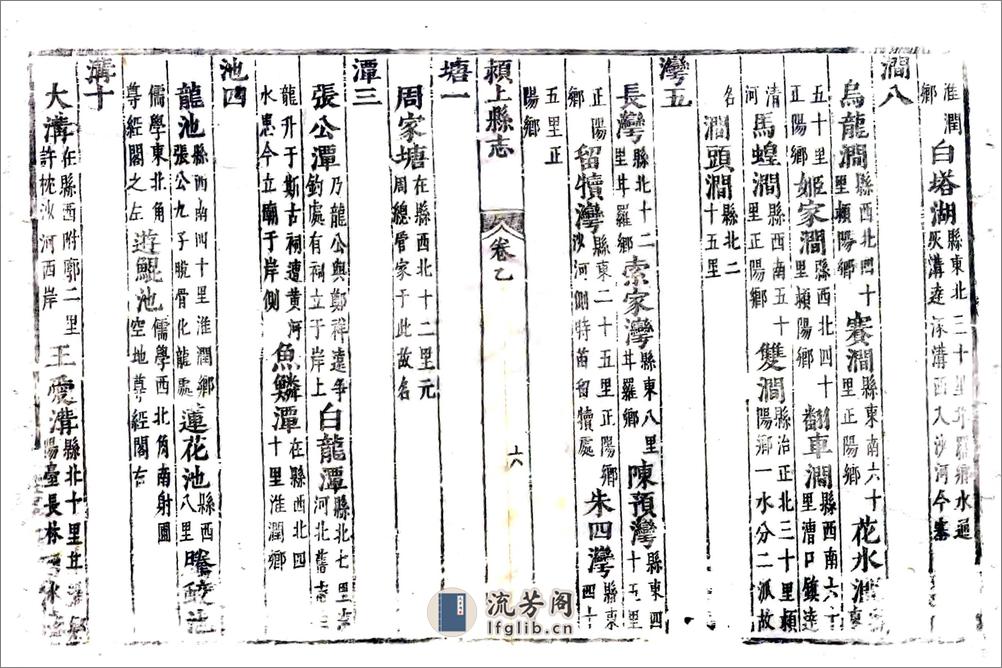 淮潤鄉白塔湖縣東北三十里井羅鄉水通灰溝達涿溝西入沙河今塞
澗八
烏龍澗縣西北四十里頴陽鄉賽澗縣東南六十里正陽鄉花水澗縣東
五十里正陽鄉姬家澗縣西北四十里頴陽鄉翻車澗縣西南六十里漕口鎮達
清河馬蝗澗縣西南五十里正陽鄉雙澗縣治正北三十里頴陽鄉一水分二派故
名澗頭澗縣北二十五里
灣五
長灣縣北十二里井羅鄉索家灣縣東八里井羅鄉陳預灣縣東四十五里
正陽鄉留犢灣縣東二十五里正陽鄉沙河側特苗留犢處朱四灣縣東四十
五里正陽鄉
頴上縣志 卷乙 六
塘一
周家塘在縣西北十二里元周總管家于此故名
潭三
張公潭乃龍公與鄭祥遠爭釣處有祠立于岸上白龍潭縣北七里河北舊志
龍升于斯古祠遭黃河水患今立廟于岸側魚鱗潭在縣西北四十里淮潤鄉
池四
龍池縣西南四十里淮潤鄉張公九子脫骨化龍處蓮花池縣西八里騰蛟池
儒學東北角尊經閣之左遊鯤池儒學西北角南射圃空地尊經閣右
溝十
大溝在縣西附郭二里許枕沙河西岸王愛溝縣北十里井陽臺長林水
流芳阁
lfglib.cn